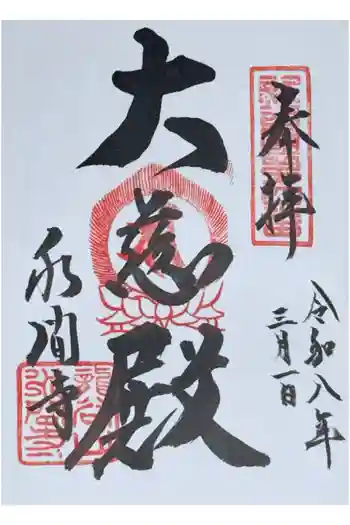 奉拝
令和八年
三月一日
大慈殿
水間寺